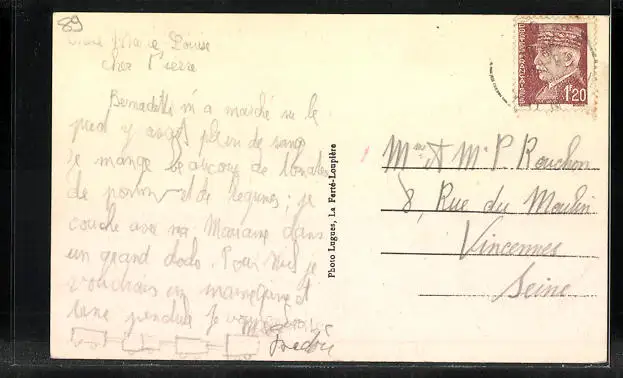 89
Chère Marie Louise
cher Pierre
Bernadette m'a marché sur le
pied y avait plein de sang
Je mange beaucoup de tomates
de pommes et de legumes; je
couche avec ma Maraine dans
un grand dodo. Pour Noel je
voudrais un
et
une pendule Je vous
Photo Lugues, La Ferté-Loupière
1F20
Mme et Mr P Rouchon
8, Rue du Moulin
Vincennes
Seine